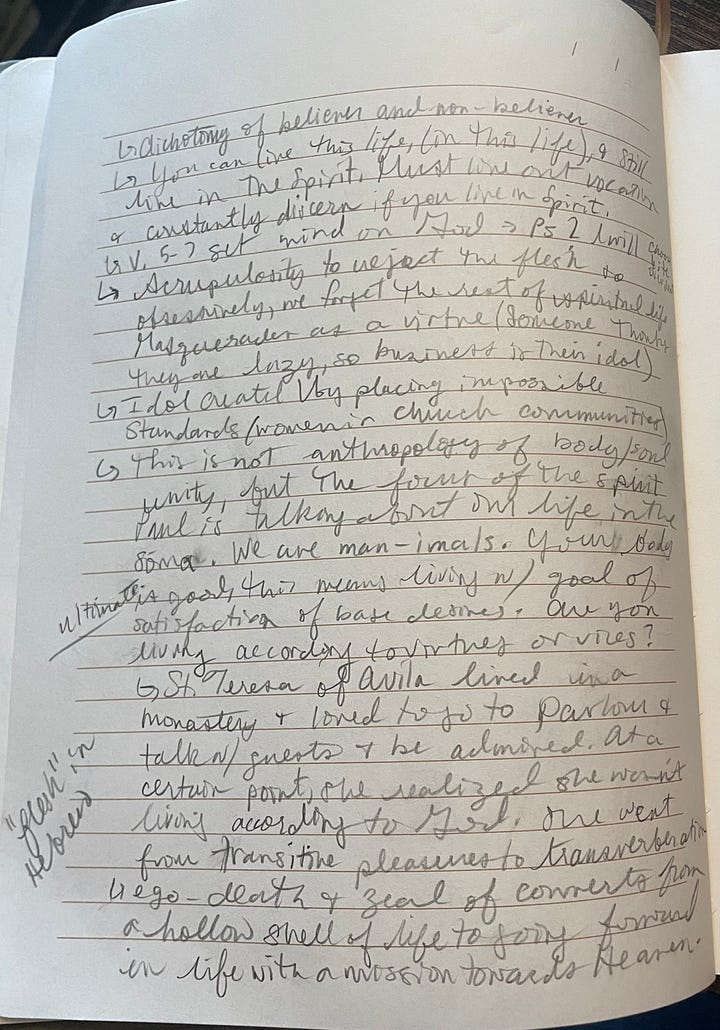 ↳ dichotomy of believer and non-believer
↳ You can live this life, (in this life), & still
live in the Spirit. Must live out vocation
& constantly discern if you live in Spirit.
↳ V. 5-7 set mind on God → Ps 2 I will
↳ Scrupulosity to reject the flesh so
obsessively, we forget the rest of spiritual life
Masquerades as a virtue (Someone thinks
they are lazy, so business is their idol)
↳ Idol created by placing impossible
standards (women in church communities)
↳ This is not anthropology of body/soul
unity, but the focus of the spirit
Paul is talking about our life in the
soma. We are man-imals. Your body
ultimate
is good, this means living w/ goal of
satisfaction of base desires. Are you
living according to virtues or vices?
↳ St. Teresa of Avila lived in a
monastery & loved to go to parlour &
talk w/ guests & be admired. At a
certain point, she realized she wasn't
living according to God. She went
from transitive pleasures to transverberation
↳ ego-death & zeal of converts from
a hollow shell of life to going forward
in life with a mission towards Heaven.
"flesh" in
Hebrew